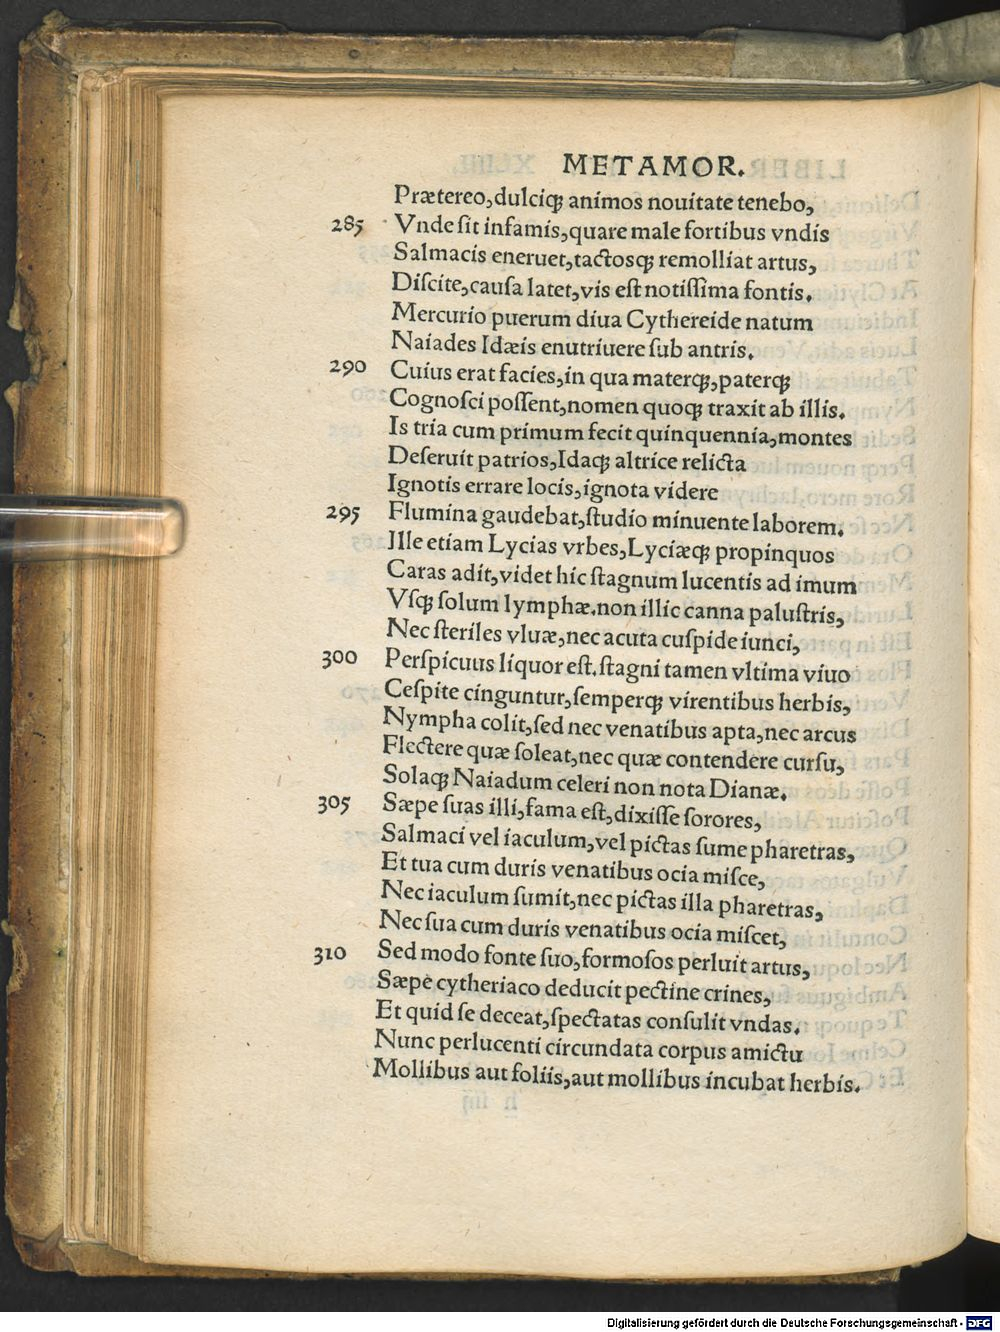 METAMOR.
Prætereo,dulciq; animos nouitate tenebo,
285 Vnde sit infamis,quare male fortibus vndis
Salmacis eneruet,tactosq; remolliat artus,
Discite,causa latet,vis est notissima fontis.
Mercurio puerum diua Cythereide natum
Naiades Idæis enutriuere sub antris.
290 Cuius erat facies,in qua materq;,paterq;
Cognosci possent,nomen quoq; traxit ab illis.
Is tria cum primum fecit quinquennia,montes
Deseruit patrios,Idaq; altrice relicta
Ignotis errare locis,ignota videre
295 Flumina gaudebat,studio minuente laborem.
Ille etiam Lycias vrbes,Lyciæq; propinquos
Caras adit,videt hic stagnum lucentis ad imum
Vsq; solum lymphæ.non illic canna palustris,
Nec steriles vluæ,nec acuta cuspide iunci,
300 Perspicuus liquor est.stagni tamen vltima viuo
Cespite cinguntur,semperq; virentibus herbis,
Nympha colit,sed nec venatibus apta,nec arcus
Flectere quæ soleat,nec quæ contendere cursu,
Solaq; Naiadum celeri non nota Dianæ.
305 Sæpe suas illi,fama est,dixisse sorores,
Salmaci vel iaculum,vel pictas sume pharetras,
Et tua cum duris venatibus ocia misce,
Nec iaculum sumit,nec pictas illa pharetras,
Nec sua cum duris venatibus ocia miscet,
310 Sed modo fonte suo,formosos perluit artus,
Sæpe cytheriaco deducit pectine crines,
Et quid se deceat,spectatas consulit vndas.
Nunc perlucenti circundata corpus amictu
Mollibus aut foliis,aut mollibus incubat herbis.
Digitalisierung gefördert durch die Deutsche Forschungsgemeinschaft - DFG